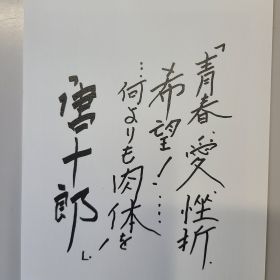 「青春、愛、挫折、
希望!……
…何よりも肉体を!
唐十郎」